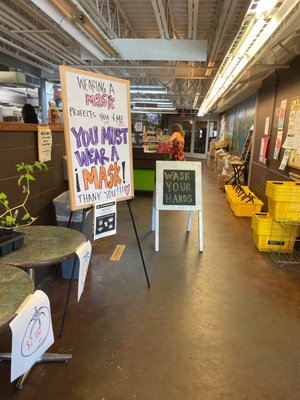 WEARING A
MASK
PROTECTS YOU & ME
YOU MUST
WEAR A
¡MASK!
THANK YOU!!!
WASH
YOUR
HANDS